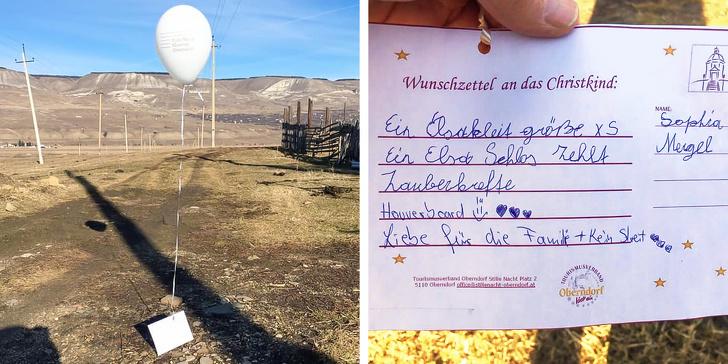 Wunschzettel an das Christkind:
Ein Elsakleit größe XS
Ein Elsa Schlos Zehlt
Zauberkrefte
Houverboard
Liebe für die Famili + Kein Streit
NAME:
Sophia
Mergel
Tourismusverband Oberndorf Stille Nacht Platz 2
5110 Oberndorf office@stillenacht-oberndorf.at
TOURISMUSVERBAND
Oberndorf